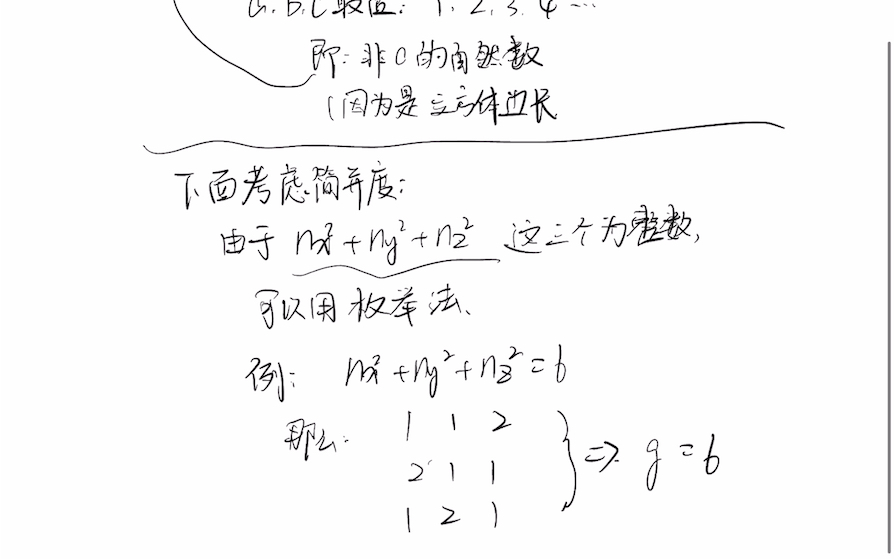 a. b. c 取值: 1. 2. 3. 4 ...
即: 非0的自然数
(因为是立方体边长
下面考虑简并度:
由于 nx²+ny²+nz² 这三个为整数,
可以用枚举法、
例: nx²+ny²+nz²=6
那么: 1 1 2
2 1 1
1 2 1
} => g=6